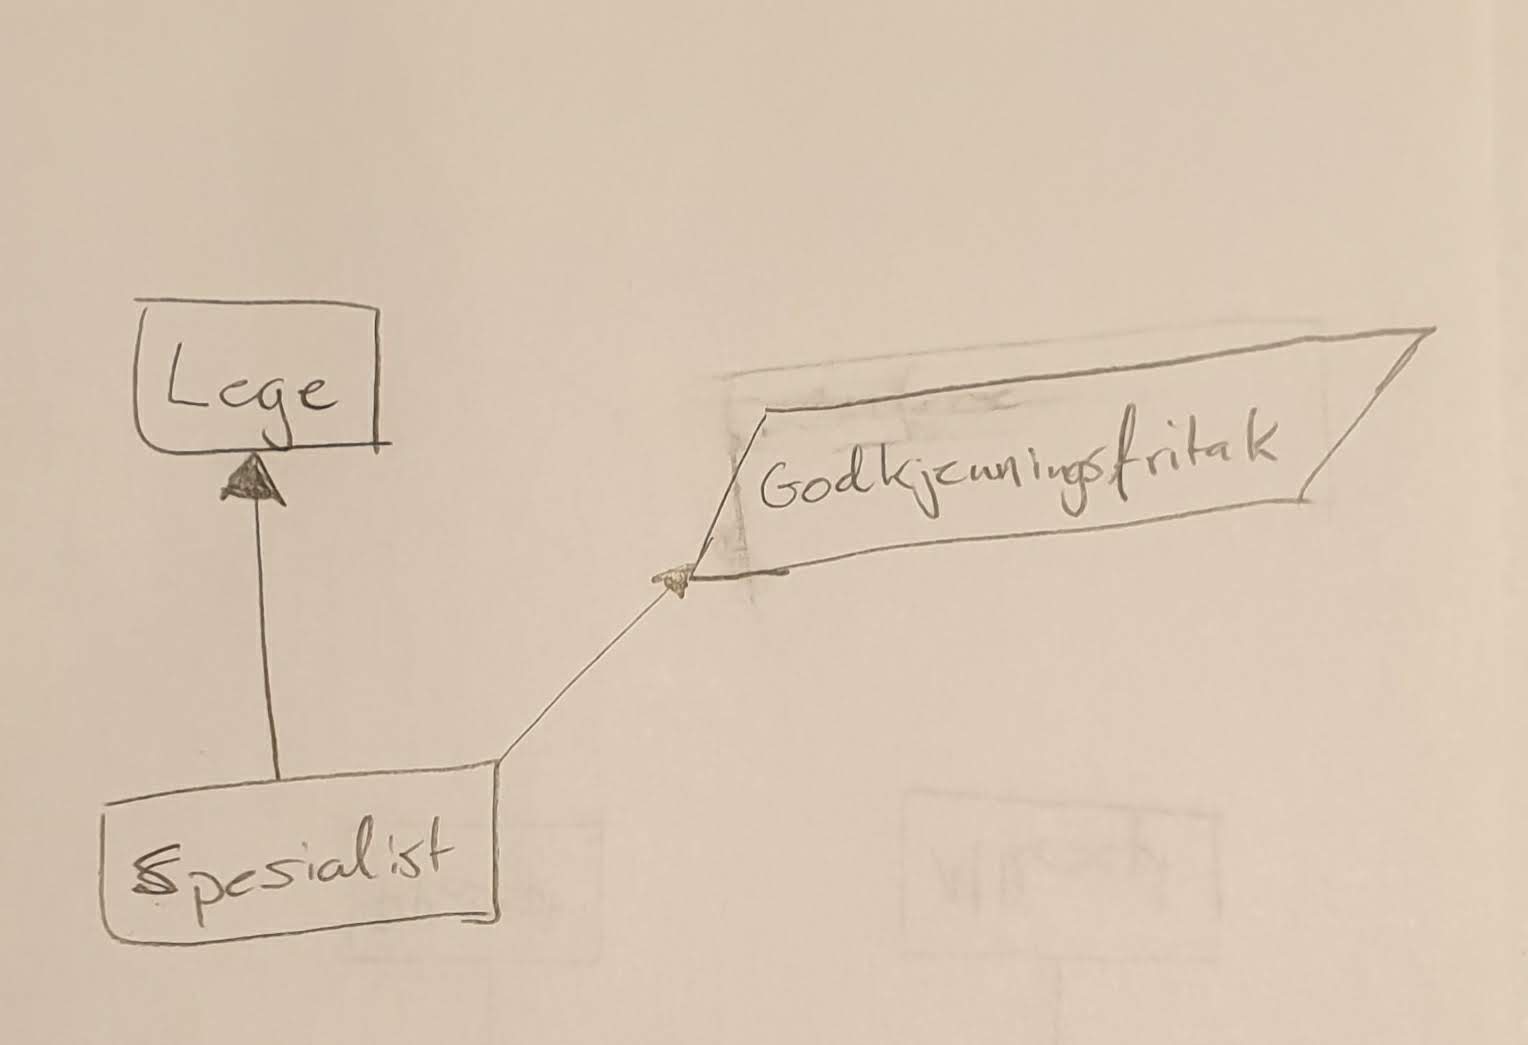 Lege
Godkjenningsfritak
Spesialist